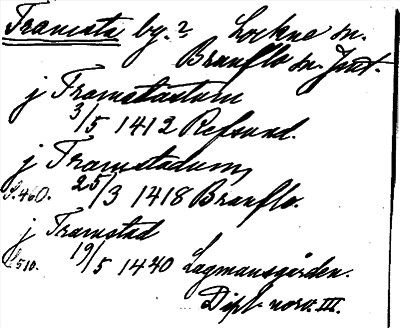 Tramsta by.? Lockne sn.
Brunflo sn. Jmt.
j Tramstadum
3/5 1412 Refsund.
j Tramstadum,
25/3 1418 Brunflo.
S. 460.
j Tramstad
19/5 1440 Lagmansgården.
S 510.
Dipl. norv. III.